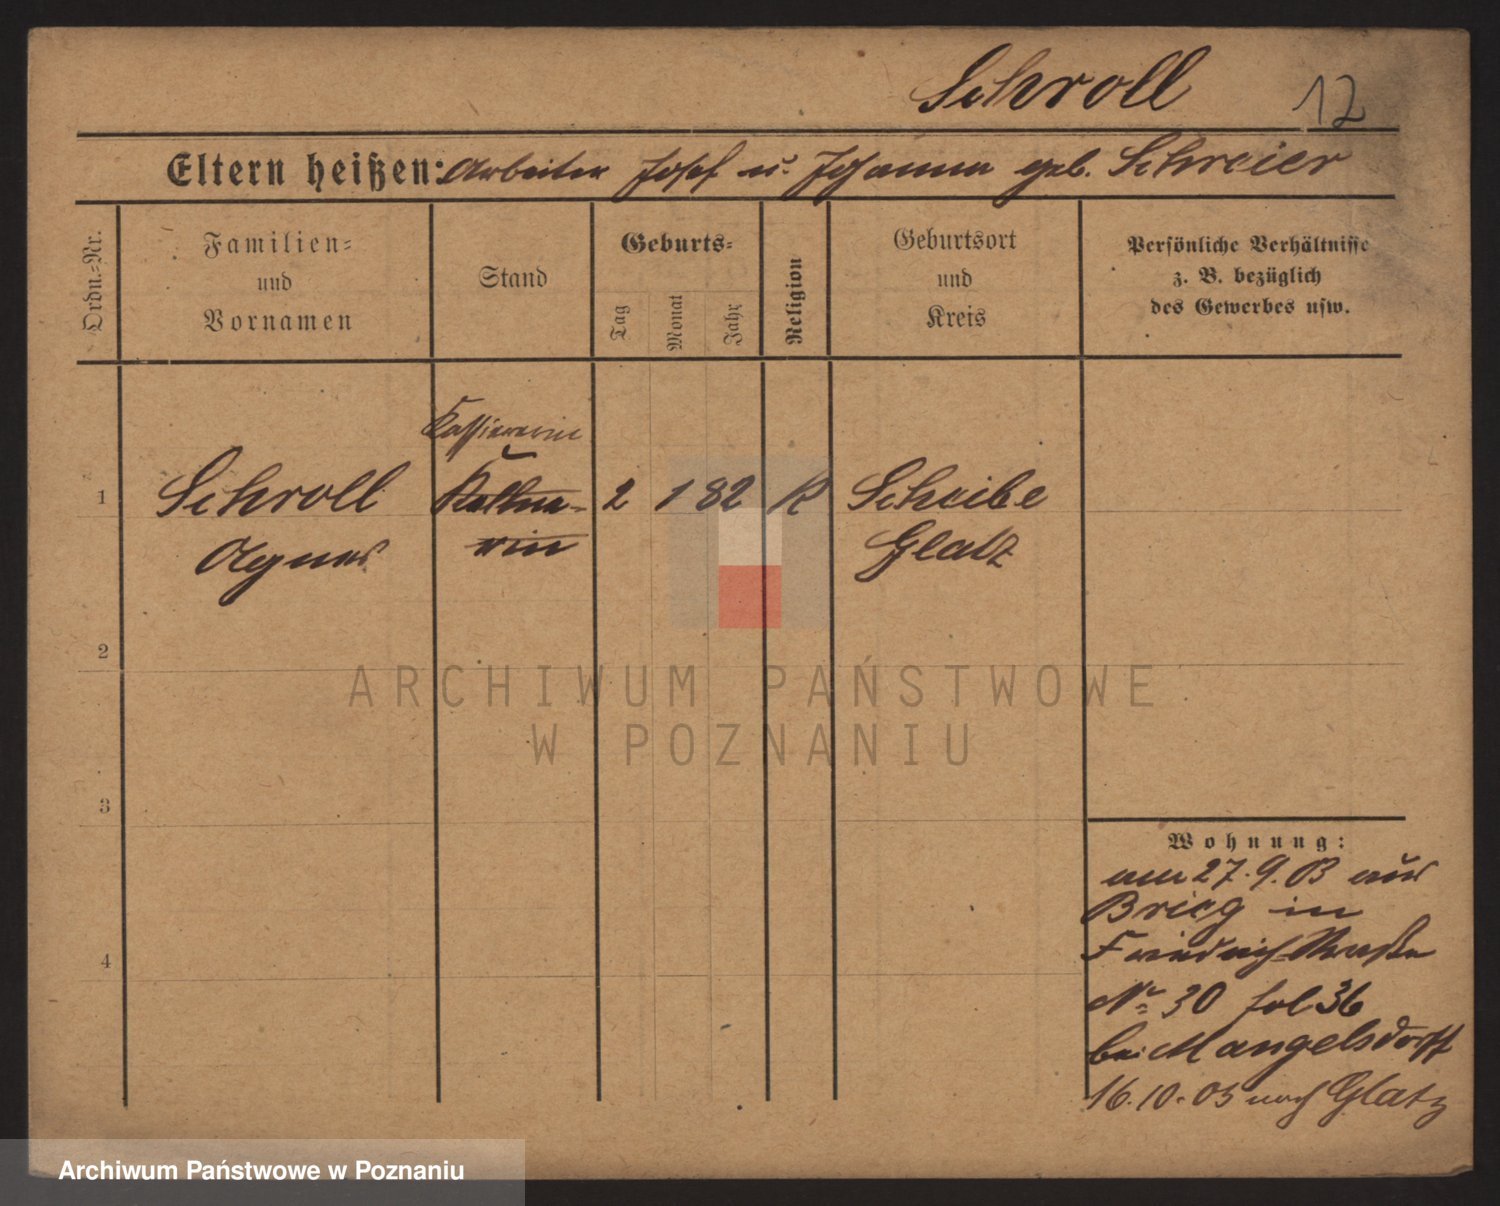 Schroll 12
Eltern heißen: Arbeiter Josef u. Johanna geb. Schreier
Ordn.-Nr.
Familien-
und
Vornamen
Stand
Geburts-
Tag
Monat
Jahr
Religion
Geburtsort
und
Kreis
Persönliche Verhältnisse
z. B. bezüglich
des Gewerbes usw.
Kassiererin
1 Schroll Kellne- 2 1 82 K Scheibe
Agnes rin Glatz
2
3
4
Wohnung:
am 27.9.03 aus
Brieg in
Friedrichstraße
No 30 fol 36
bei Mangelsdorff
16.10.03 nach Glatz
ARCHIWUM PAŃSTWOWE
W POZNANIU
Archiwum Państwowe w Poznaniu